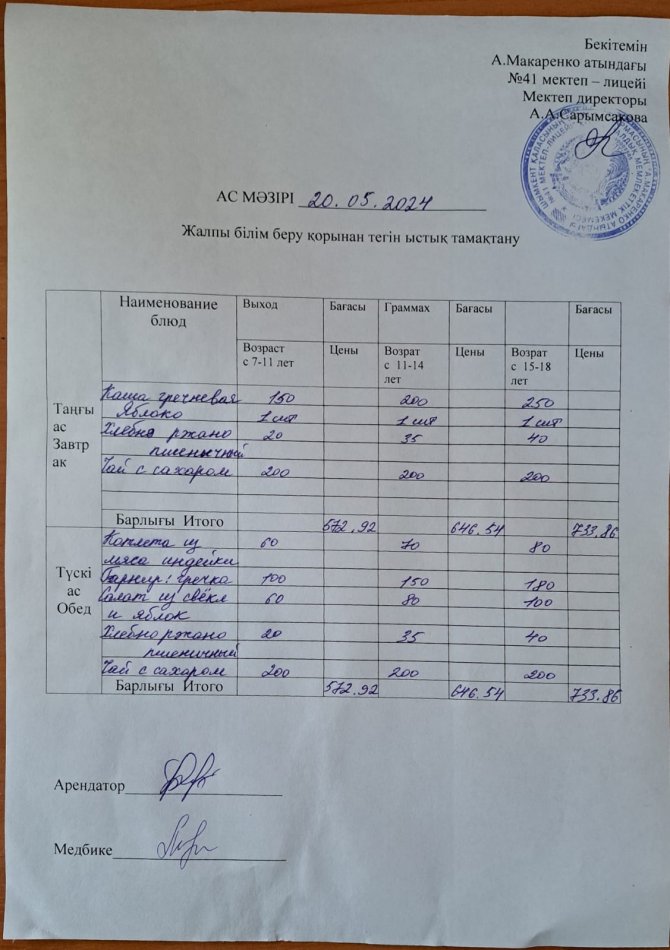 Бекітемін
А.Макаренко атындағы
№41 мектеп – лицейі
Мектеп директоры
А.А.Сарымсакова
АС МӘЗІРІ 20.05.2024
Жалпы білім беру қорынан тегін ыстық тамақтану
Наименование блюд Выход Бағасы Граммах Бағасы Бағасы
Возраст с 7-11 лет Цены Возрат с 11-14 лет Цены Возрат с 15-18 лет Цены
Таңғы ас Завтрак
Каша гречневая 150 200 250
Яблоко 1 шт 1 шт 1 шт
Хлебно ржано 20 35 40
пшеничный
Чай с сахаром 200 200 200
Барлығы Итого 572.92 646.54 733.86
Түскі ас Обед
Котлета из 60 70 80
мяса индейки
Гарнир: гречка 100 150 180
Салат из свёкл 60 80 100
и яблок
Хлебно ржано 20 35 40
пшеничный
Чай с сахаром 200 200 200
Барлығы Итого 572.92 646.54 733.86
Арендатор
Медбике